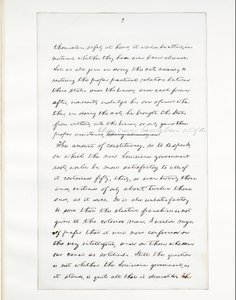 themselves safely at home, it would be utterly im-
material whether they had ever been abroad.
Let us all join in doing the acts necessary to
restoring the proper practical relations between
these states and the Union; and each forever
after, innocently indulge his own opinion whe-
ther, in doing the acts, he brought the States
from without, into the Union, or only gave them
proper assistance, they never having been out of it.
The amount of constituency, so to speak,
on which the new Louisiana government
rests, would be more satisfactory to all, if
it contained fifty, thirty, or even twenty thous-
and, instead of only about twelve thous-
and, as it does. It is also unsatisfactory
to some that the elective franchise is not
given to the colored man. I would my-
self prefer that it were now conferred on
the very intelligent, and on those who serve
our cause as soldiers. Still the question
is not whether the Louisiana government, as
it stands, is quite all that is desirable.